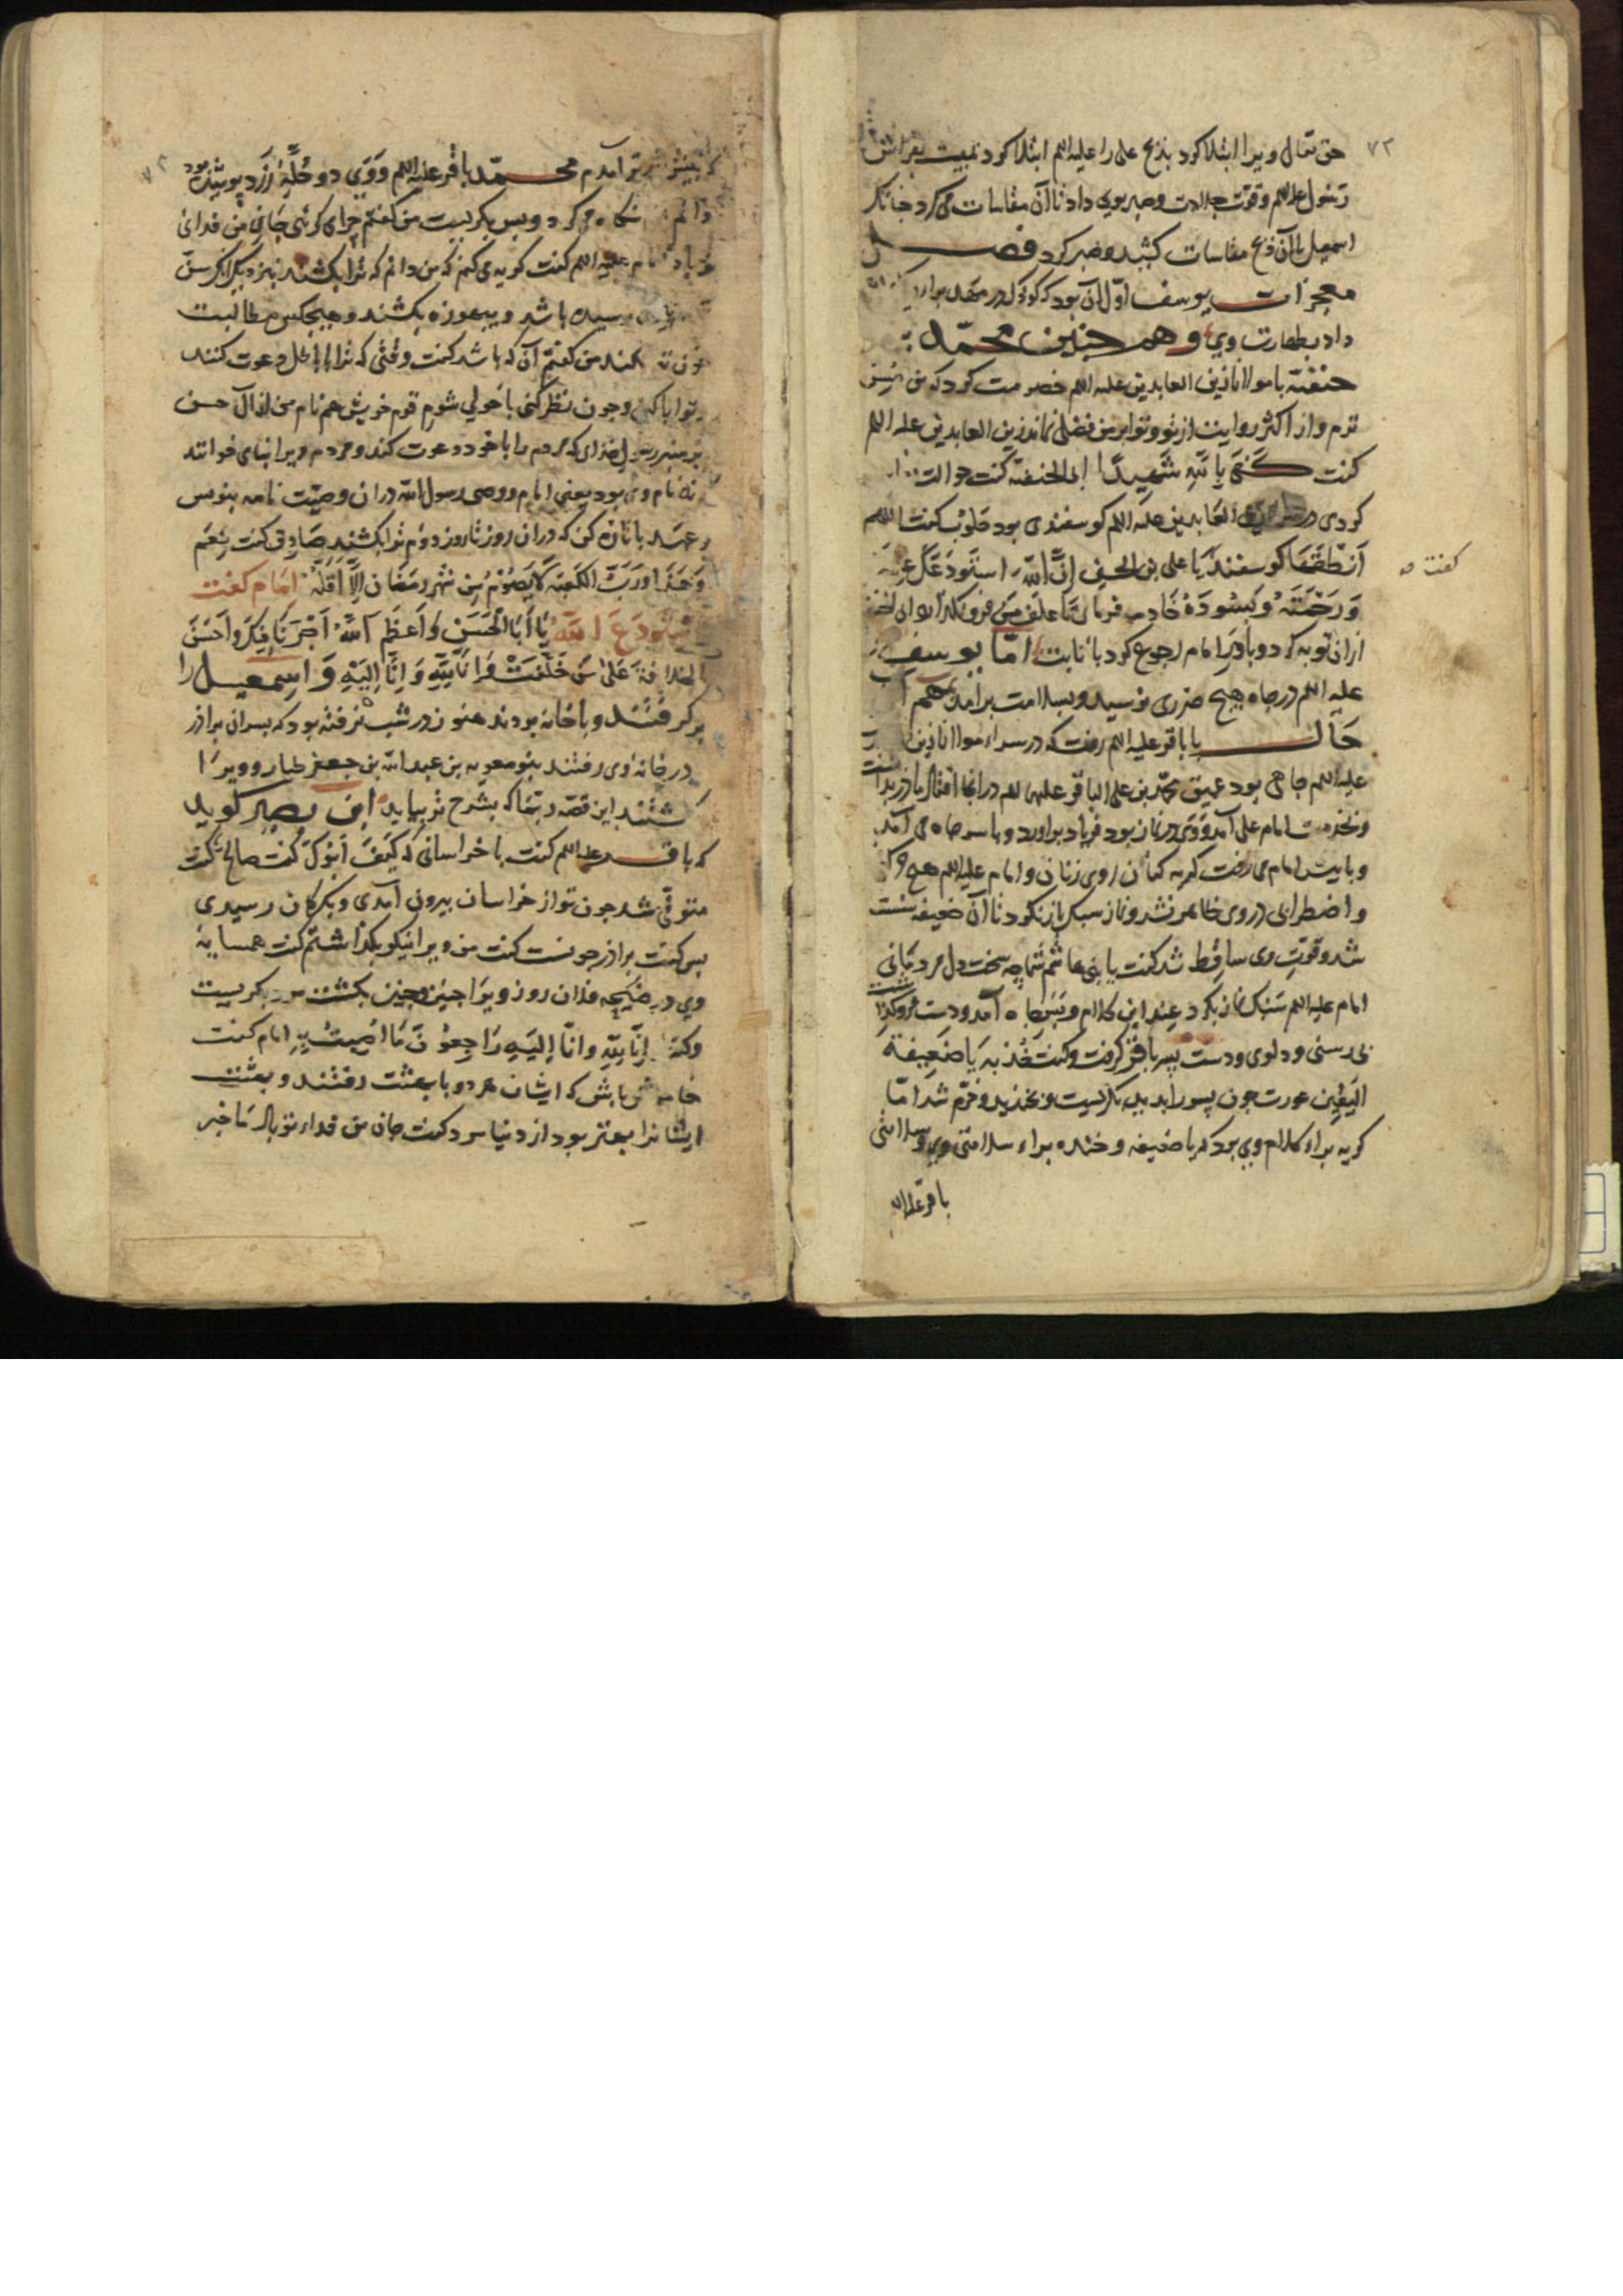 حق تعالی ویرا ابتلا کرد بذبح علی را علیه السلم ابتلا کرد بمبیت بفراش
۷۳
رسول علیه السلم وقوت جلادت وصبر بوی داد تا آن مقاسات می کرد چنانک
اسمعیل با آن ذبح مقاسات کشید وصبر کرد فصل
معجزات یوسف اول آن بود که کودک در مهد براءت
داد بطهارت وی وهمچنین محمد بن
حنفیه با مولانا زین العابدین علیه السلم خصومت کرد که من
ترم واز اکثر روایت از تو وتوابر من فضلی نماند زین العابدین علیه السلم
گفت کفی بالله شهیدا ابن الحنفیه گفت حوالت
کردی در العابدین علیه السلم گوسفندی بود محلوب گفت اللهم
انطقها گوسفند یا علی بن الحسین ان الله استودعک علمه
گفت صه
ورحمته وبسوده خادم فرمای تا علف من فرو نگذارد ابن الحنفیه
ازان توبه کرد وبا در امام رجوع کرد بانابت اما یوسف
علیه السلم در چاه هیچ ضرری نرسید وبسلامت برآمد همچنین
حال با باقر علیه السلم رفت که در سراء مولانا زین
علیه السلم چاهی بود عمیق محمد بن علی الباقر علیهما السلم در آنجا افتاد مادر بدانست
وبخدمت امام علی آمد ووی در نماز بود فریاد برآورد وبا سر چاه می آمد
وبا پیش امام می رفت گریه کنان روی زنان وامام علیه السلم هیچ
واضطرابی در وی ظاهر نشد ونماز سبک باز نکرد تا آن ضعیفه سست
شد وقوت وی ساقط شد گفت یا بنی هاشم شما چه سخت دل مردمانی
امام علیه السلم سبک نماز بکرد عند این کلام وبسر چاه آمد ودست فرو گذاشت
بی رسنی ودلوی ودست پسر باقر گرفت وگفت خذیه یا ضعیفة
الیقین عورت چون پسر را بدید بگریست وبخندید وخرم شد اما
گریه براء کلام وی بود که یا ضعیفه وخنده براء سلامتی وی وسلامتی
باقر علیه السلم
که پیش تو آمدم محمد باقر علیه السلم ووی دو حله زرد پوشیده بود
۷۴
دائم نگاه می کرد وپس بگریست من گفتم چرا می گریی جان من فدای
تو باد امام علیه السلم گفت گریه می کنم که من دانم که ترا بکشند نیز دیگر آنکه سن
رسیده باشد وپیعوزه بکشند وهیچکس مطالبت
خون تو نکند من گفتم آن که باشد گفت وقتی که ترا با کل دعوت کنند
وتوابا کنی وچون نظر کنی باخولی شوم قوم خویش هم نام من از آل حسن
بر منبر رسول خدای که مردم را با خود دعوت کند ومردم ویرا بنامی خوانند
که نه نام وی بود یعنی امام ووصی رسول الله در آن وصیت نامه بنویس
وعهد با تازه کن که در آن روز تا روز دوم ترا بکشند صادق گفت نعم
وهذا ورب الکعبه لا یصوم من شهر رمضان الا اقله امام گفت
استودع الله یا ابا الحسن واعظم الله اجرنا فیک واحسن
الخلافة علی من خلفت فانا لله وانا الیه واسمعیل را
بر گرفتند وبا خانه بودند هنوز در شب نرفته بود که پسران برادر
در خانه وی رفتند بنو معویه بن عبد الله بن جعفر طیار وویرا
کشتند این قصه رتبتها که بشرح تر بیاید ابن بصیر گوید
که باقر علیه السلم گفت با خراسانی که کیف ابوک گفت صالح گفت
متوفی شد چون تو از خراسان بیرون آمدی وبگرگان رسیدی
پس گفت برادر چونست گفت من ویرا نیکو بگذاشتم گفت همسایه
وی در ضیعه فلان روز ویرا چنین وچنین بکشت مرد بگریست
وگفت انا لله وانا الیه راجعون ما اصبت به امام گفت
خاموش باش که ایشان هر دو با بهشت رفتند وبهشت
ایشانرا بهتر بود از دنیا مرد گفت جان من فداء تو باد ما خبر